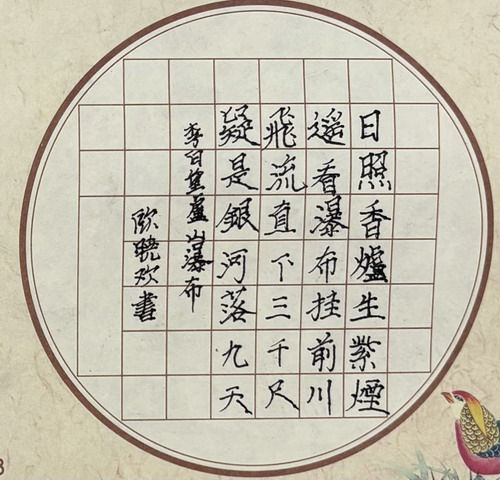 日照香爐生紫煙
遙看瀑布挂前川
飛流直下三千尺
疑是銀河落九天
李白望廬山瀑布
欧曉欢書